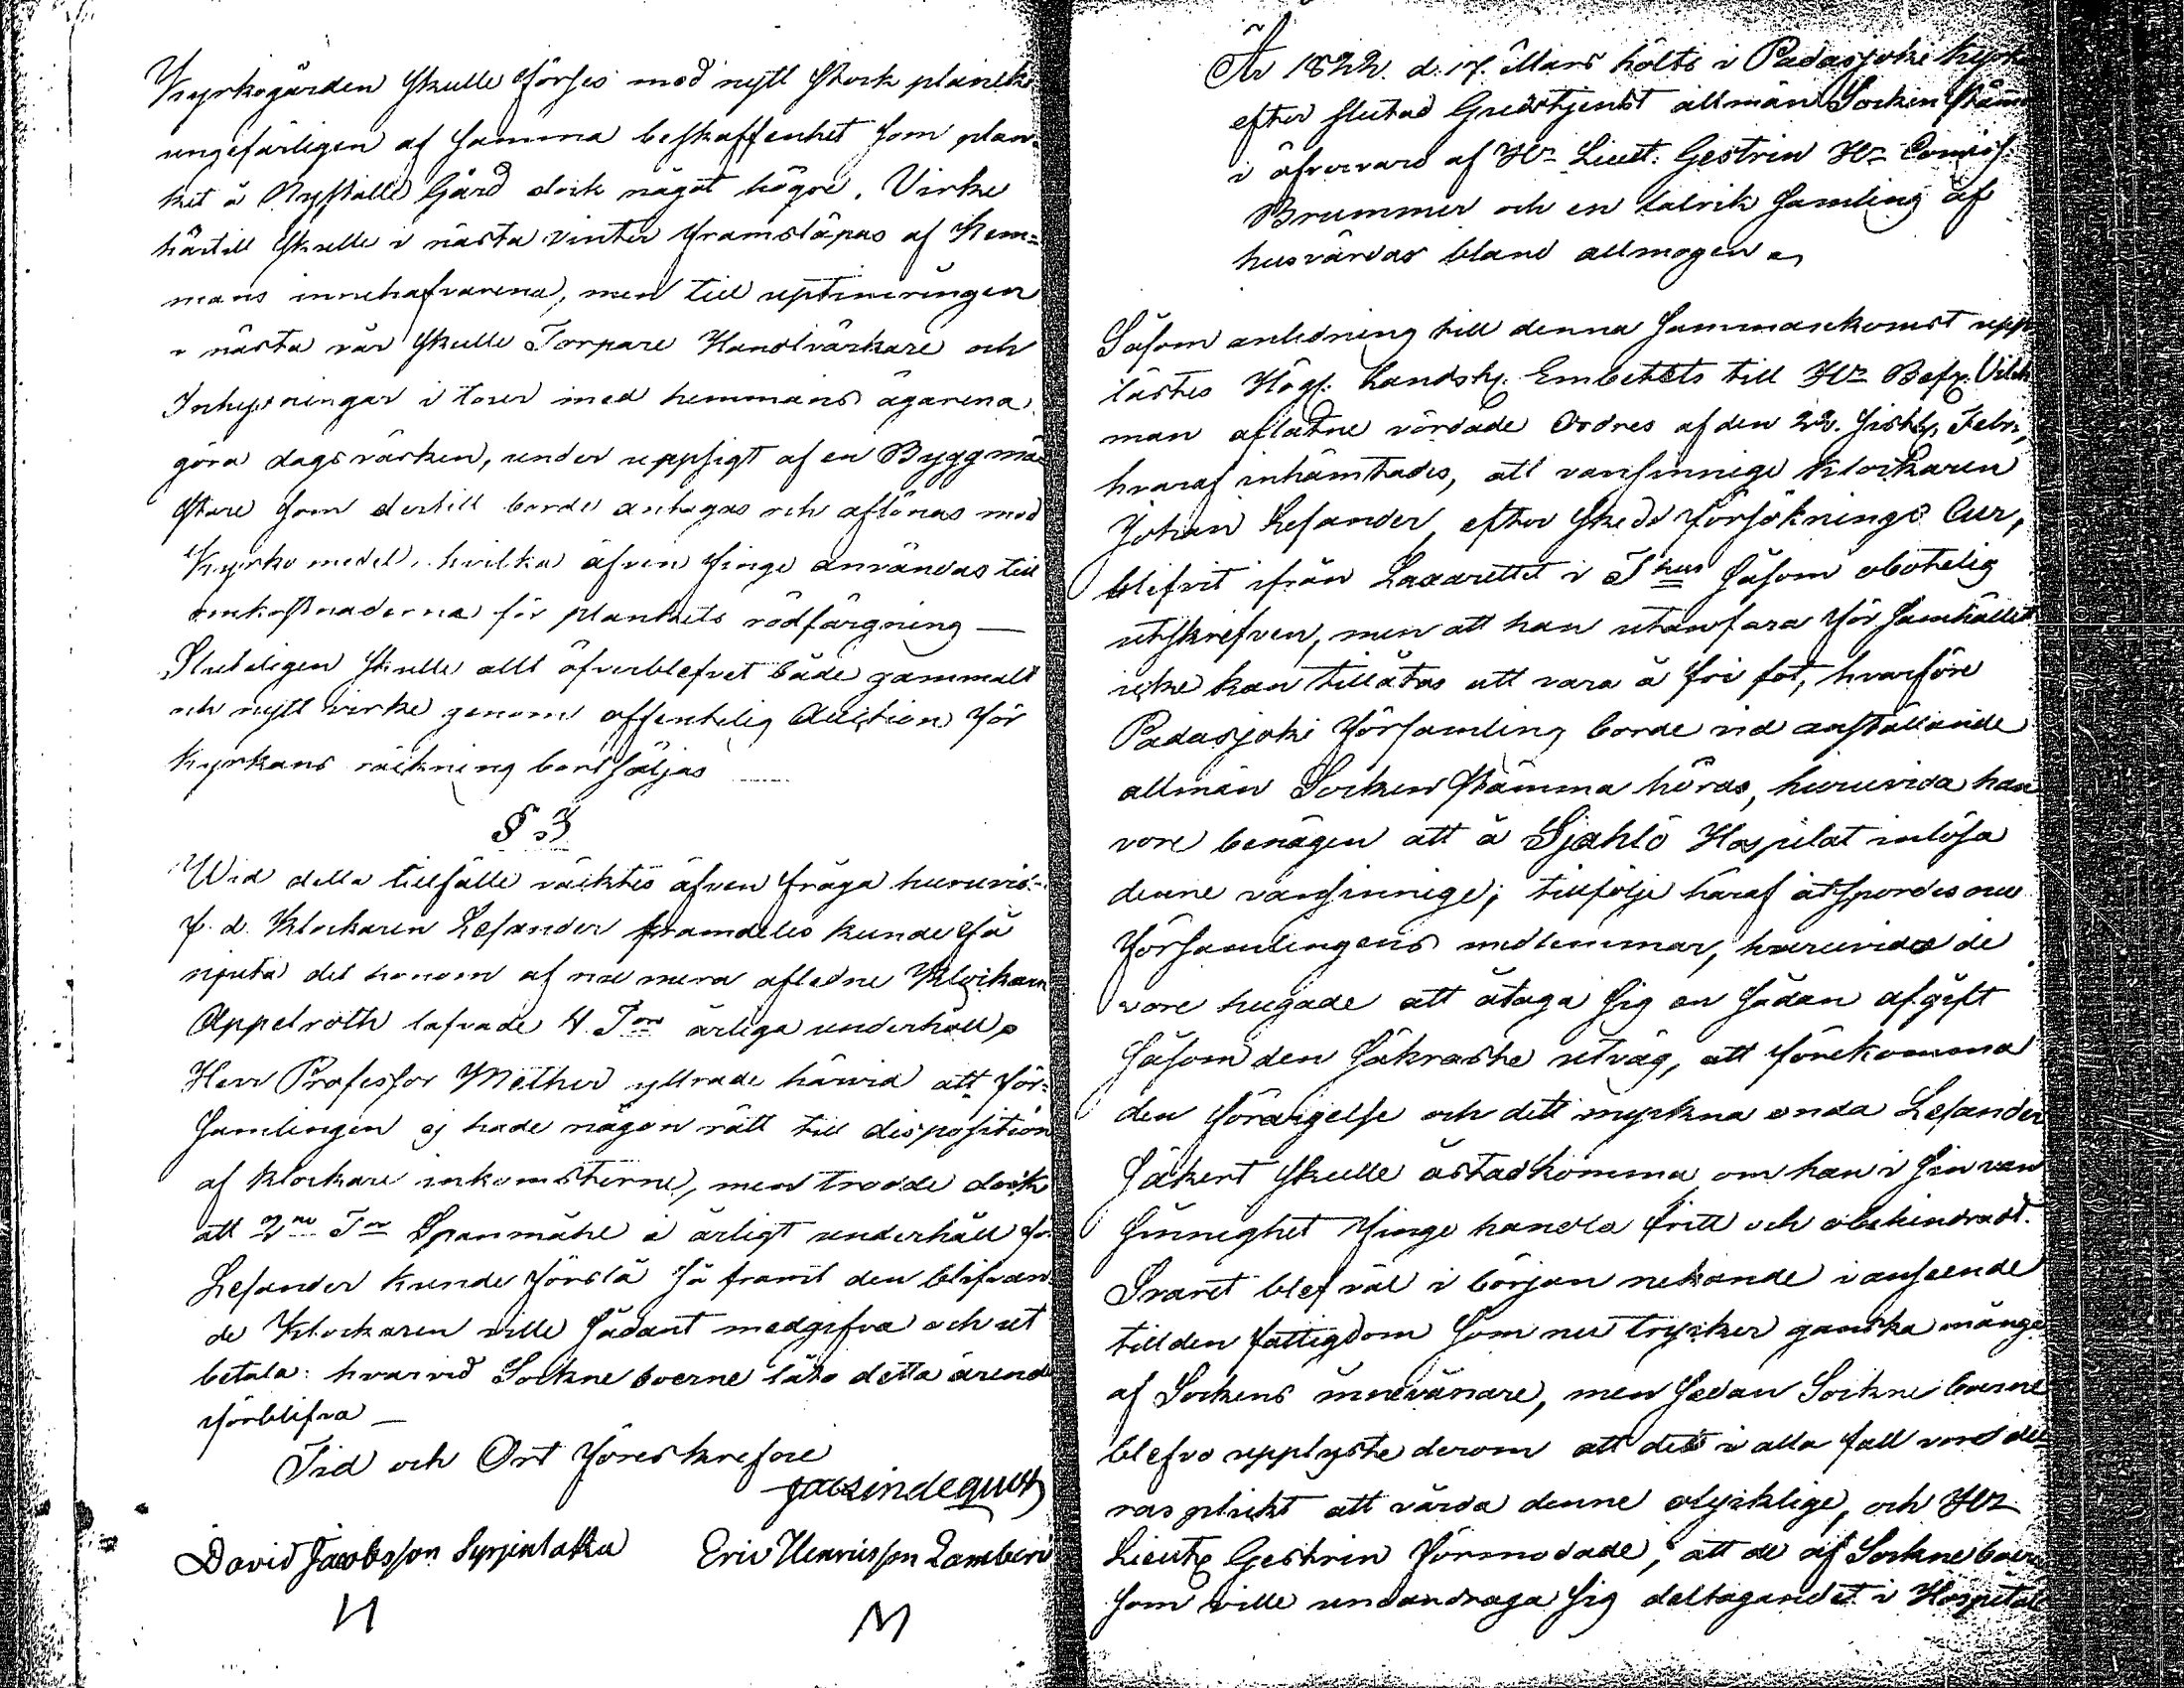 Kyrkogården skulle förses med nytt stock plank
ungefärligen af samma beskaffenhet som plan-
ket å Nystalle Gård dock något högre. Virke
härtill skulle i nästa vinter framsläpas af Hem-
mans innehafvarena, men till uptimringen
i nästa vår skulle Torpare Handtvärkare och
Inhysningar i tour med hemmans ägarena
göra dagsvärken, under uppsigt af en Byggmä-
stare som dertill borde antagas och aflönas med
Kyrko medel, hvilka äfven finge användas till
omkostnaderna för plankets rödfärgning —
Sluteligen skulle allt öfverblefvet både gammalt
och nytt virke genom offentelig Auction för
Kyrkans räkning bortsäljas
§ 3
Wid detta tillfälle väcktes äfven fråga huruvid-
f. d. Klockaren Lesander framdeles kunde få
njuta det honom af nu mera afledne Klockaren
Appelroth lofvade 4 Tnr årliga underhåll,
Herr Professor Mether yttrade härvid att För-
samlingen ej hade någon rätt till disposition
af klockare inkomsterne, men trodde dock
att 2ne Tnr Spanmåhl i årligt underhåll för
Lesander kunde förslå så framt den blifvan-
de Klockaren ville sådant medgifva och ut
betala: hvarvid Sockne boerne läto detta ärende
förblifva —
Tid och Ort föreskrefne
David Jacobsson Eric Henricsson
År 1822. d. 17. Mars hölts i Padasjoki kyrka
efter slutad Gudstjenst allmän Socken stäm
i öfvervaro af Hr Lieut: Gestrin Hr Comiss.
Brummer och en talrik samling af
husvärdar bland allmogen
Såsom anledning till denna sammankomst upp
lästes Högl. Landsh. Embetets till Hr Befz. Vilck
man aflåtne vördade Ordres af den 22. sistl. Febr.,
hvaraf inhämtades, att vansinnige klockaren
Johan Lesander, efter skedd försöknings Cur,
blifvit ifrån Lazarettet i Thus såsom obotelig
utskrefven, men att han utan fara för Samhället
icke kan tillåtas att vara å fri fot, hvarföre
Padasjoki församling borde vid anställande
allmän Socken stämma höras, huruvida han
vore benägen att å Sjählö Hospital inlösa
denne vansinnige; tillfölje häraf åtspordes nu
församlingens medlemmar, huruvida de
vore hugade att åtaga sig en sådan afgift
såsom den säkraste utväg, att förekomma
den förargelse och dett myckna onda Lesander
säkert skulle åstadkomma om han i sin van
sinneghet finge handla fritt och obehindradt.
Svaret blef väl i början nekande i anseende
till den fattigdom som nu trycker ganska många
af Sockens innevånare, men sedan Sockne boerne
blefvo upplyste derom att det i alla fall vore de-
ras plickt att vårda denne olycklige, och Hr
Lieut. Gestrin förmodade, att de af Sockne boer
som ville undandraga sig deltagandet i Hospitals